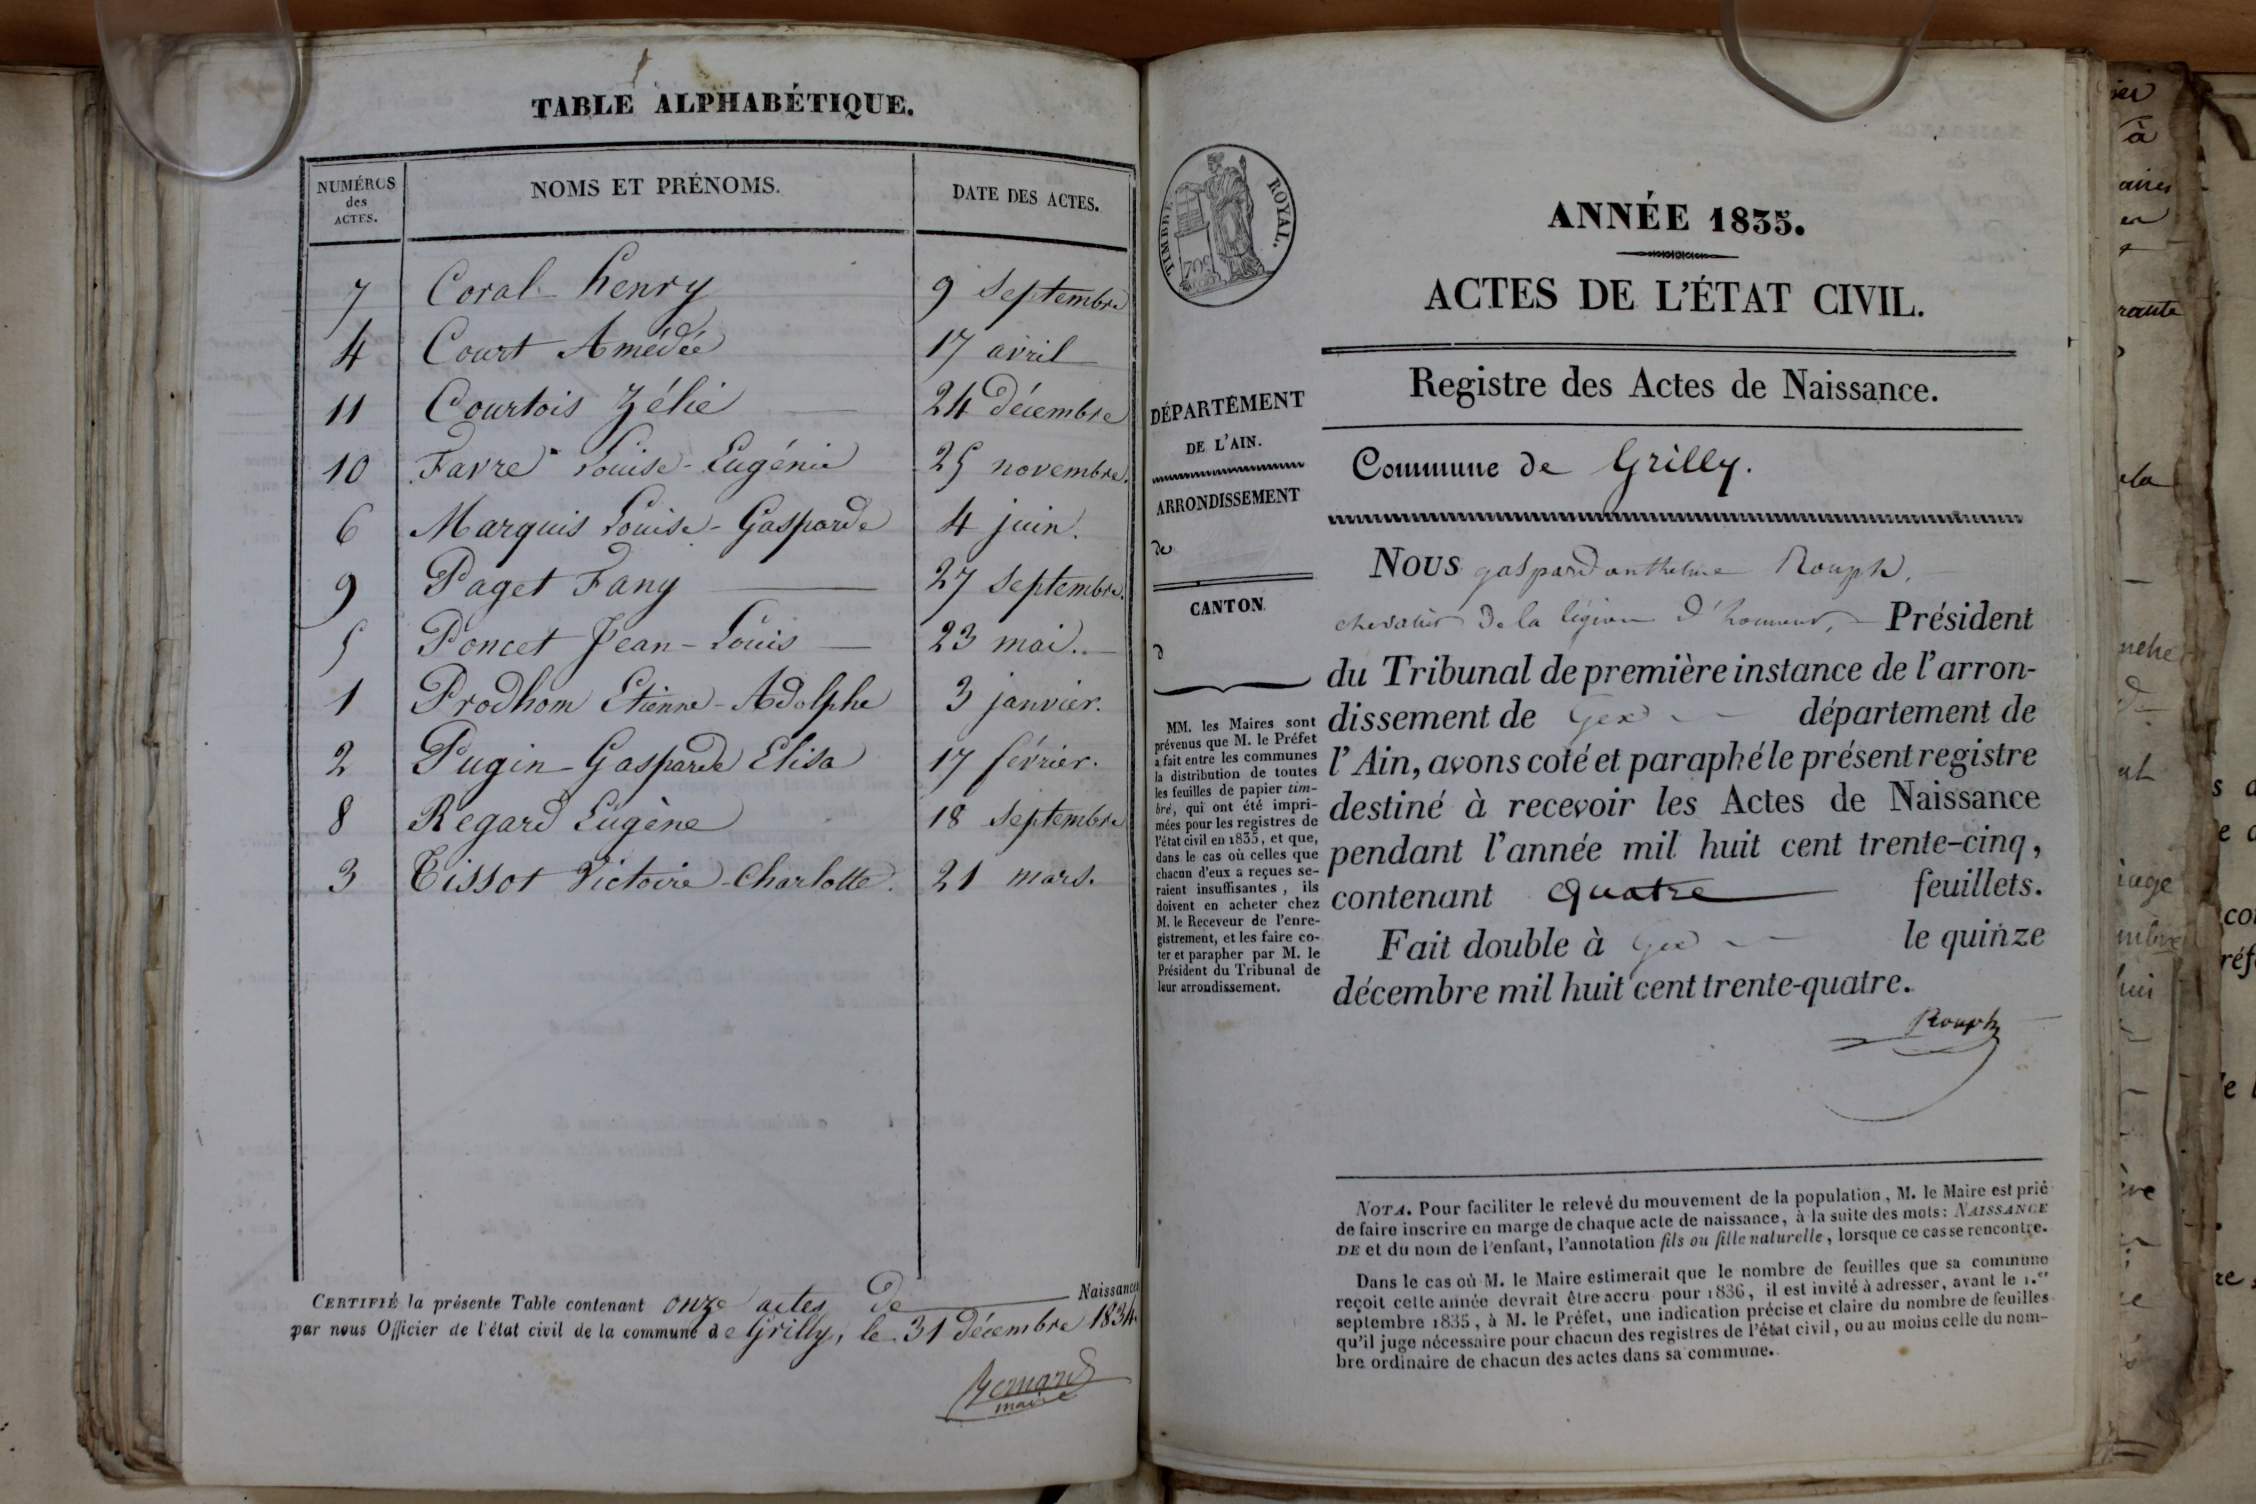 TABLE ALPHABÉTIQUE.
NUMÉROS des ACTES. NOMS ET PRÉNOMS. DATE DES ACTES.
7 Coral henry 9 septembre
4 Court Amédée 17 avril
11 Courtois Zélie 24 décembre
10 Favre Louise-Eugénie 25 novembre.
6 Marquis Louise-Gasparde 4 juin.
9 Paget Fany 27 septembre.
5 Poncet Jean-Louis 23 mai.
1 Prodhom Etienne-Adolphe 3 janvier.
2 Pugin Gasparde Elisa 17 février.
8 Regard Eugène 18 septembre
3 Tissot Victoire-Charlotte. 21 mars.
CERTIFIÉ la présente Table contenant onze actes de Naissances
par nous Officier de l'état civil de la commune de Grilly, le 31 décembre 1834.
maire
TIMBRE ROYAL.
ANNÉE 1835.
ACTES DE L'ÉTAT CIVIL.
Registre des Actes de Naissance.
Commune de Grilly.
DÉPARTEMENT
DE L'AIN.
ARRONDISSEMENT
de
CANTON
d
MM. les Maires sont
prévenus que M. le Préfet
a fait entre les communes
la distribution de toutes
les feuilles de papier tim-
bré, qui ont été impri-
mées pour les registres de
l'état civil en 1835, et que,
dans le cas où celles que
chacun d'eux a reçues se-
raient insuffisantes, ils
doivent en acheter chez
M. le Receveur de l'enre-
gistrement, et les faire co-
ter et parapher par M. le
Président du Tribunal de
leur arrondissement.
Nous gaspard anthelme Rouph,
chevalier de la légion d'honneur, Président
du Tribunal de première instance de l'arron-
dissement de Gex département de
l'Ain, avons coté et paraphé le présent registre
destiné à recevoir les Actes de Naissance
pendant l'année mil huit cent trente-cinq,
contenant quatre feuillets.
Fait double à Gex le quinze
décembre mil huit cent trente-quatre.
Rouph
NOTA. Pour faciliter le relevé du mouvement de la population, M. le Maire est prié
de faire inscrire en marge de chaque acte de naissance, à la suite des mots: NAISSANCE
DE et du nom de l'enfant, l'annotation fils ou fille naturelle, lorsque ce cas se rencontre.
Dans le cas où M. le Maire estimerait que le nombre de feuilles que sa commune
reçoit cette année devrait être accru pour 1836, il est invité à adresser, avant le 1.er
septembre 1835, à M. le Préfet, une indication précise et claire du nombre de feuilles
qu'il juge nécessaire pour chacun des registres de l'état civil, ou au moins celle du nom-
bre ordinaire de chacun des actes dans sa commune.